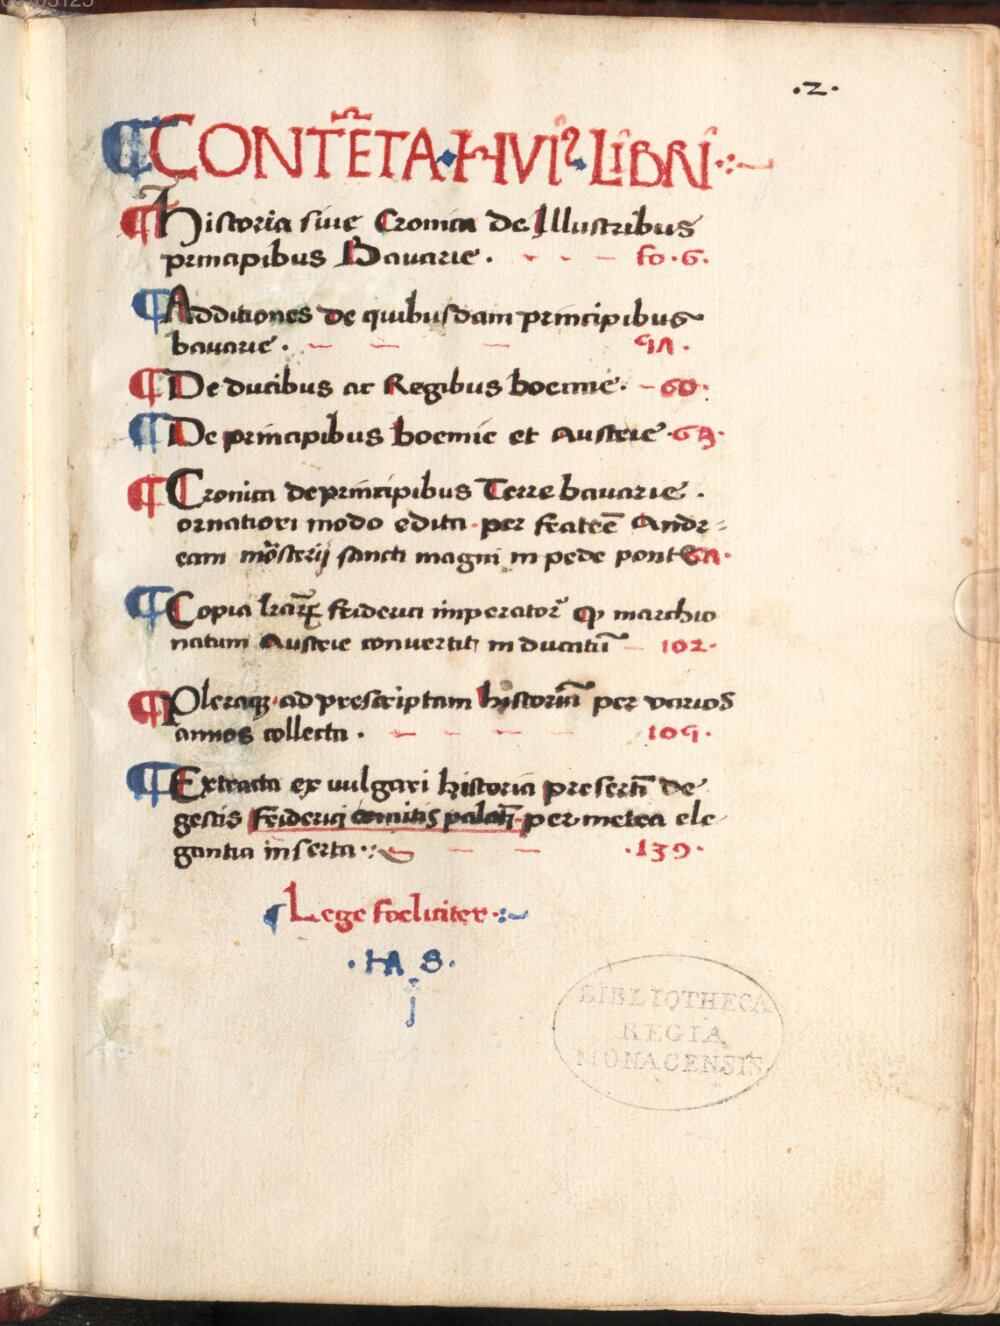 ·2·
¶ CONTE̅TA · HVIꝰ · LIBRI
¶ Historia siue Cronica de Illustribus
principibus Bauarie . fo · 6 ·
¶ Additiones de quibusdam principibus
bauarie .
¶ De ducibus ac Regibus boemie · 60 ·
¶ De principibus boemie et Austrie ·
¶ Cronica de principibus Terre bauarie .
ornatiori modo edita · per fratrē Andr⸗
eam mo̅sterij sancti magni in pede pontis
¶ Copia lrãꝝ friderici imperatorꝭ qͥ marchio
natum Austrie conuertit in ducatū 102 ·
¶ Pleraqꝫ · ad prescriptam historiā per varios
annos collecta .
¶ Extracta ex vulgari historia presertī de
gestis friderici comitis palatī · per metra ele
gantia inserta · 139 ·
Lege foeliciter
· HA S ·
j
BIBLIOTHECA
REGIA
MONACENSIS